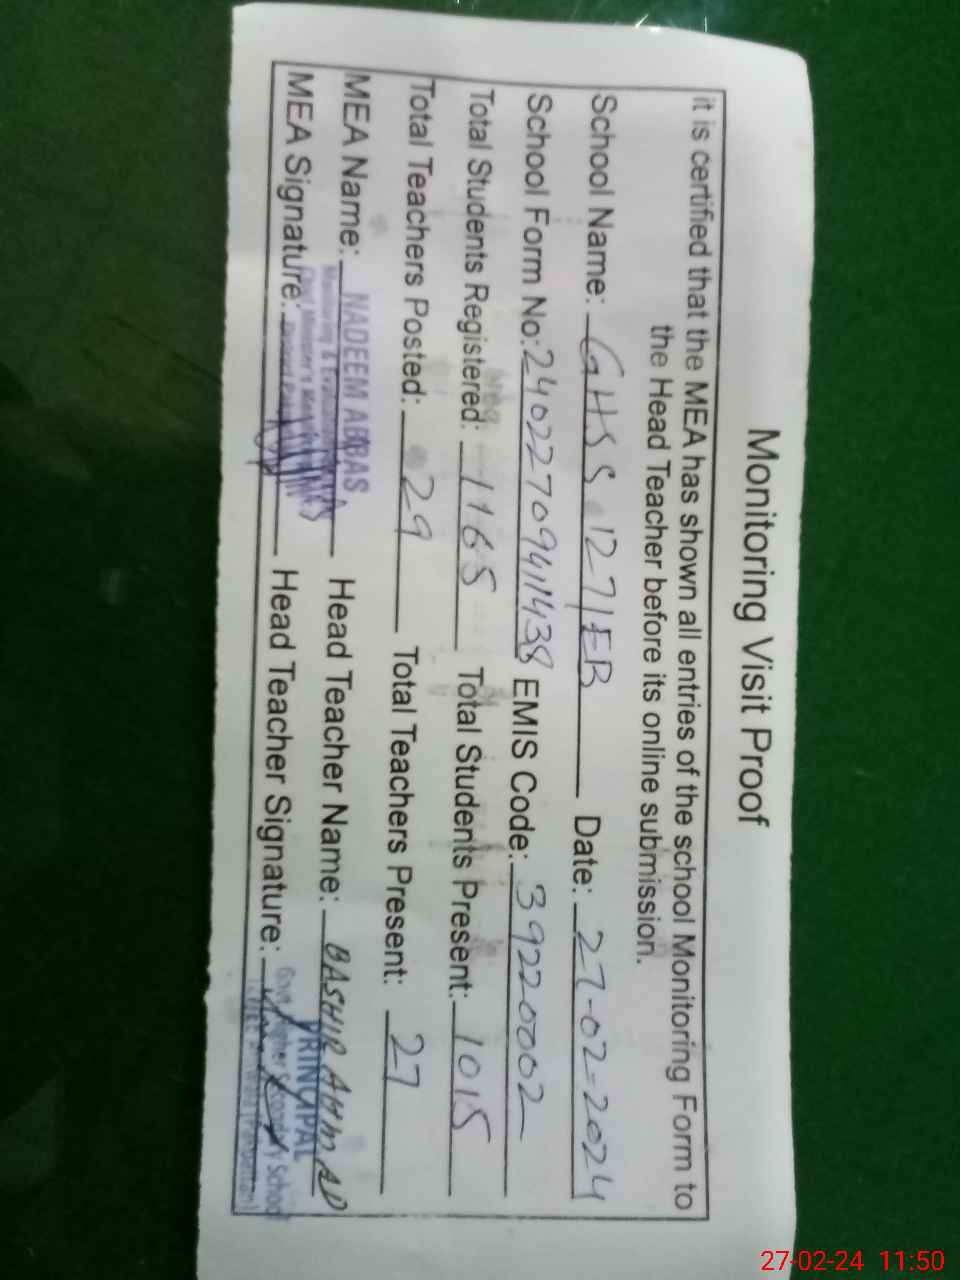 Monitoring Visit Proof
it is certified that the MEA has shown all entries of the school Monitoring Form to
the Head Teacher before its online submission.
School Name: GHSS 127/EB Date: 27-02-2024
School Form No: 24022709411438 EMIS Code: 39220002
Total Students Registered: 1165 Total Students Present: 1015
Total Teachers Posted: 29 Total Teachers Present: 27
MEA Name: NADEEM ABBAS Head Teacher Name: BASHIR AHMAD
Monitoring & Evaluation
MEA Signature: Head Teacher Signature:
PRINCIPAL
Govt. Higher Secondary School
27-02-24 11:50